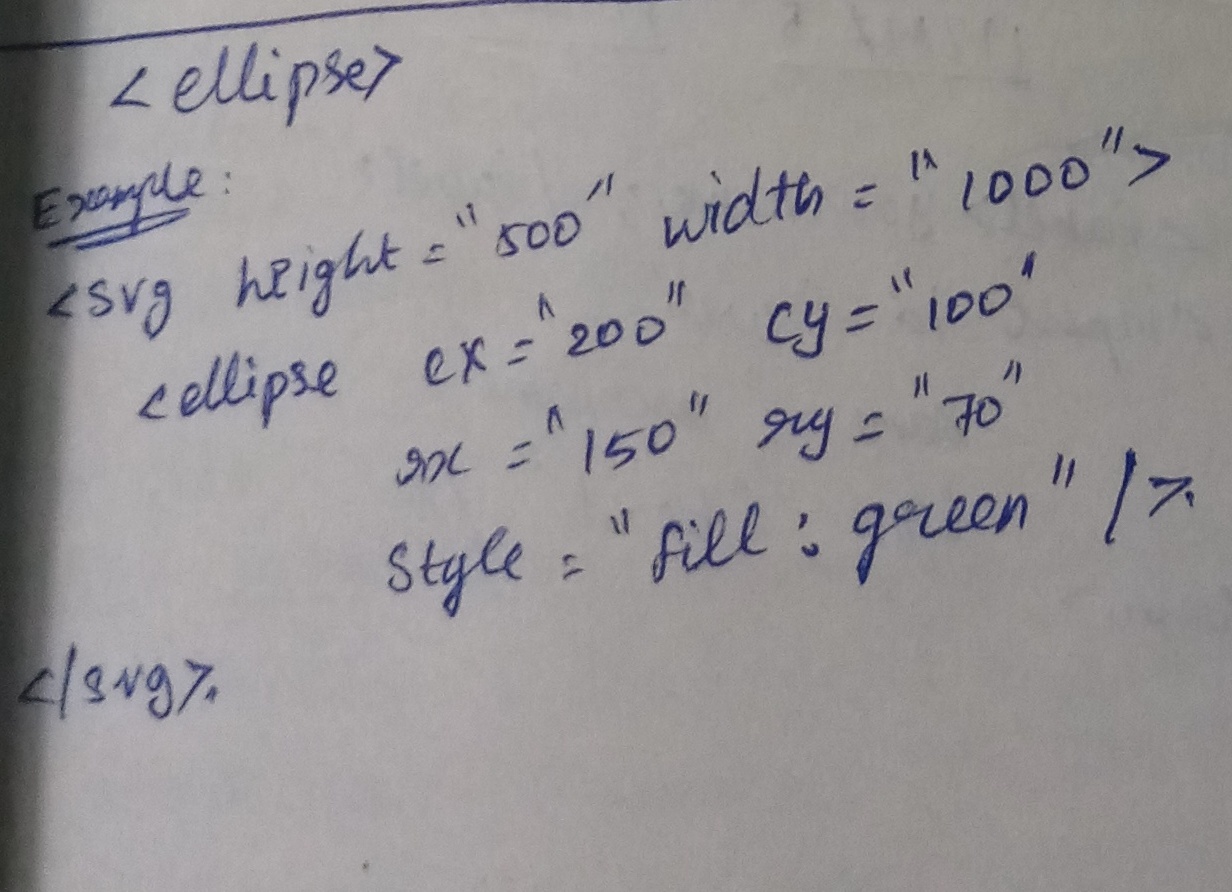 <ellipse>
Example:
<svg height="500" width="1000">
<ellipse cx="200" cy="100"
rx="150" ry="70"
style="fill:green"/>
</svg>